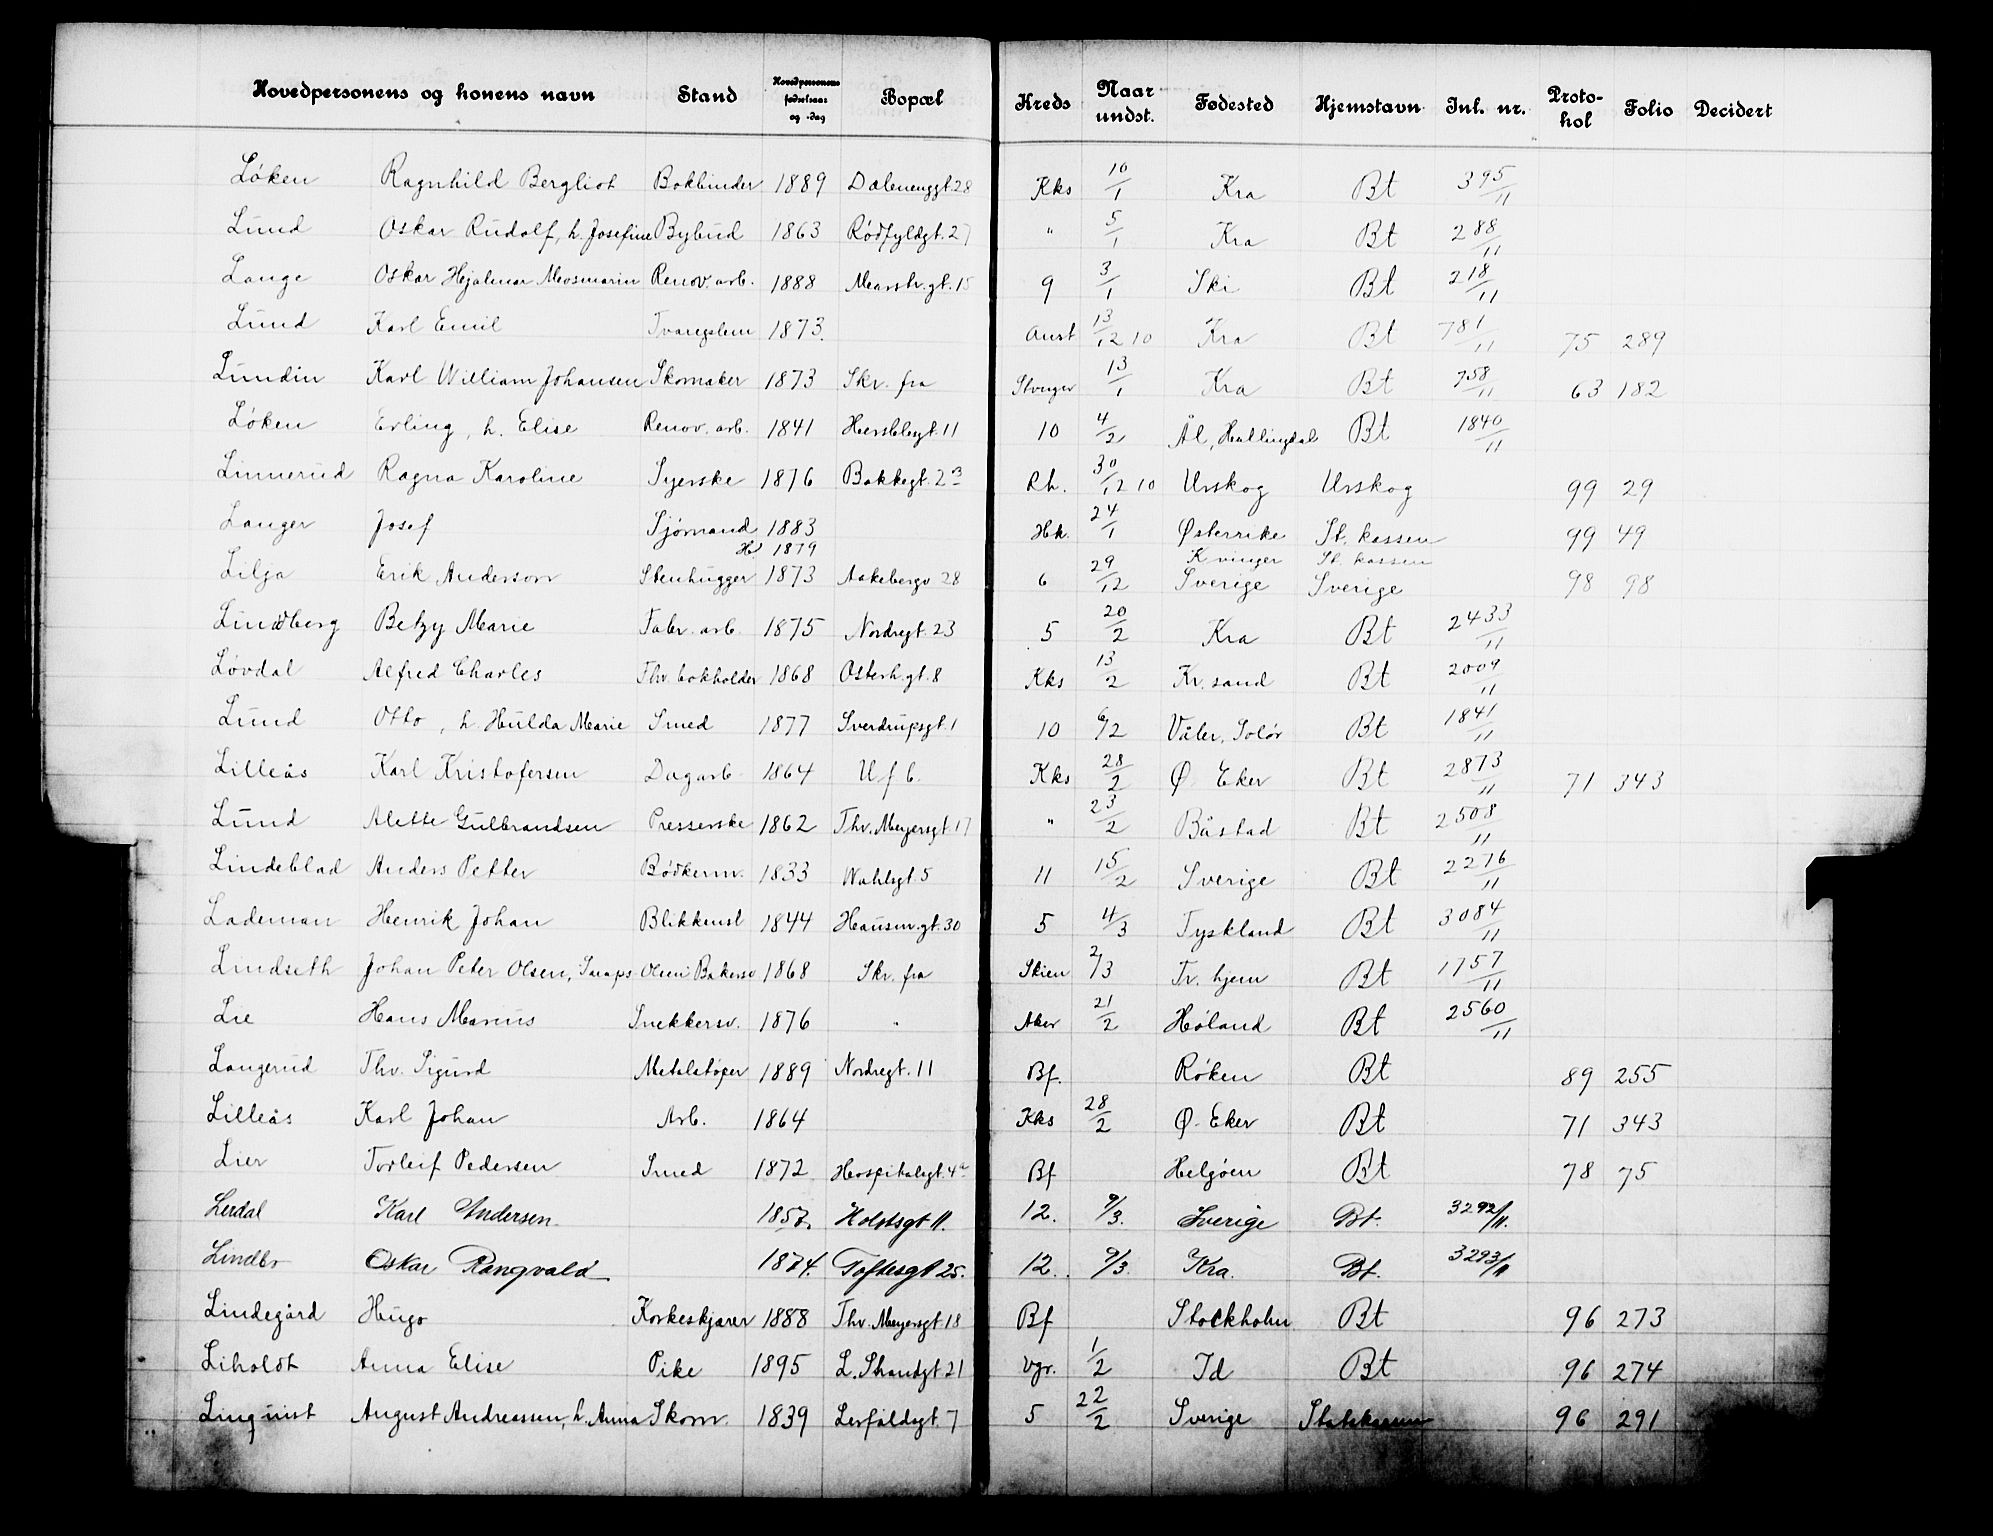 Hovedpersonens og konens navn Stand Hovedpersonens fødselsaar og -dag Bopæl Kreds Naar undst. Fødested Hjemstavn Inl. nr. Protokol Folio Decidert
Løken Ragnhild Bergliot Bokbinder 1889 Dælenenggt. 28 Kks 10/1 Kra Bt 395/11
Lund Oskar Rudolf, h. Josefine Bybud 1863 Rødfyldgt. 27 " 5/1 Kra Bt 288/11
Lange Oskar Hjalmar Renov. arb. 1888 15 9 3/1 Ski Bt 218/11
Lund Karl Emil Tvangslem 1873. Anst 13/12 10 Kra Bt 781/11 75 289
Lundin Karl William Johansen Skomaker 1873 Skr. fra Stvnger 13/1 Kra Bt 758/11 63 182
Løken Erling, h. Elise Renov. arb. 1841 Herslebsgt. 11 10 4/2 Ål, Hallingdal Bt 1840/11
Linnerud Ragna Karoline Syerske 1876 Bakkegt. 23 Rh. 30/12 10 Urskog Urskog 99 29
Langer Josef Sjømand 1883 Hk. 24/1 Østerrike St. kassen 99 49
H. 1879 Kvinger St. kassen
Lilja Erik Anderson Stenhugger 1873 Aakebergv 28 6 29/12 Sverige Sverige 98 98
Lindberg Betzy Marie Fabr. arb. 1875 Nordregt. 23 5 20/2 Kra Bt 2433/11
Løvdal Alfred Charles Fhv. bokholder 1868 Osterh.gt. 8 Kks 13/2 Kr.sand Bt 2009/11
Lund Otto, h. Hulda Marie Smed 1877 Sverdrupsgt. 1 10 6/2 Våler, Solør Bt 1841/11
Lilleås Karl Kristofersen Dagarb. 1864 U f b. Kks 28/2 Ø. Eker Bt 2873/11 71 343
Lund Alette Gulbrandsen Presserske 1862 Thv. Meyersgt. 17 " 23/2 Båstad Bt 2508/11
Lindeblad Anders Petter Bødkerm. 1833 Wahlsgt. 5 11 15/2 Sverige Bt 2276/11
Lademan Henrik Johan Blikkensl 1844 Hausm.gt. 30 5 4/3 Tyskland Bt 3084/11
Lindseth Johan Peter Olsen, Olsen Bakersv 1868 Skr. fra Skien 2/3 Tr.hjem Bt 1757/11
Lie Hans Marius Snekkersv. 1876 " Aker 21/2 Høland Bt 2560/11
Langerud Thv. Sigurd Metalstøper 1889 Nordregt. 11 Bf. Røken Bt 89 255
Lilleås Karl Johan Arb. 1864 Kks 28/2 Ø. Eker Bt 71 343
Lier Torleif Pedersen Smed 1872 Hospitalsgt. 4a Bf Helgøen Bt 78 75
Lerdal Karl Andersen. 1857. Holstsgt 11. 12. 9/3. Sverige Bt. 3292/11.
Lindbo Oskar Rangvald 1874. Toftesgt 25. 12. 9/3. Kra. Bt. 3293/11
Lindegård Hugo Korkeskjærer 1888 Thv. Meyersgt. 18 Bf Stockholm Bt 96 273
Liholdt Anna Elise Pike 1895 L. Strandgt. 21 Vgr. 1/2 Id Bt 96 274
Linqvist August Andreassen, h. Anna Skom. 1839 Lerfaldsgt. 7 5 22/2 Sverige Statskassen 96 291